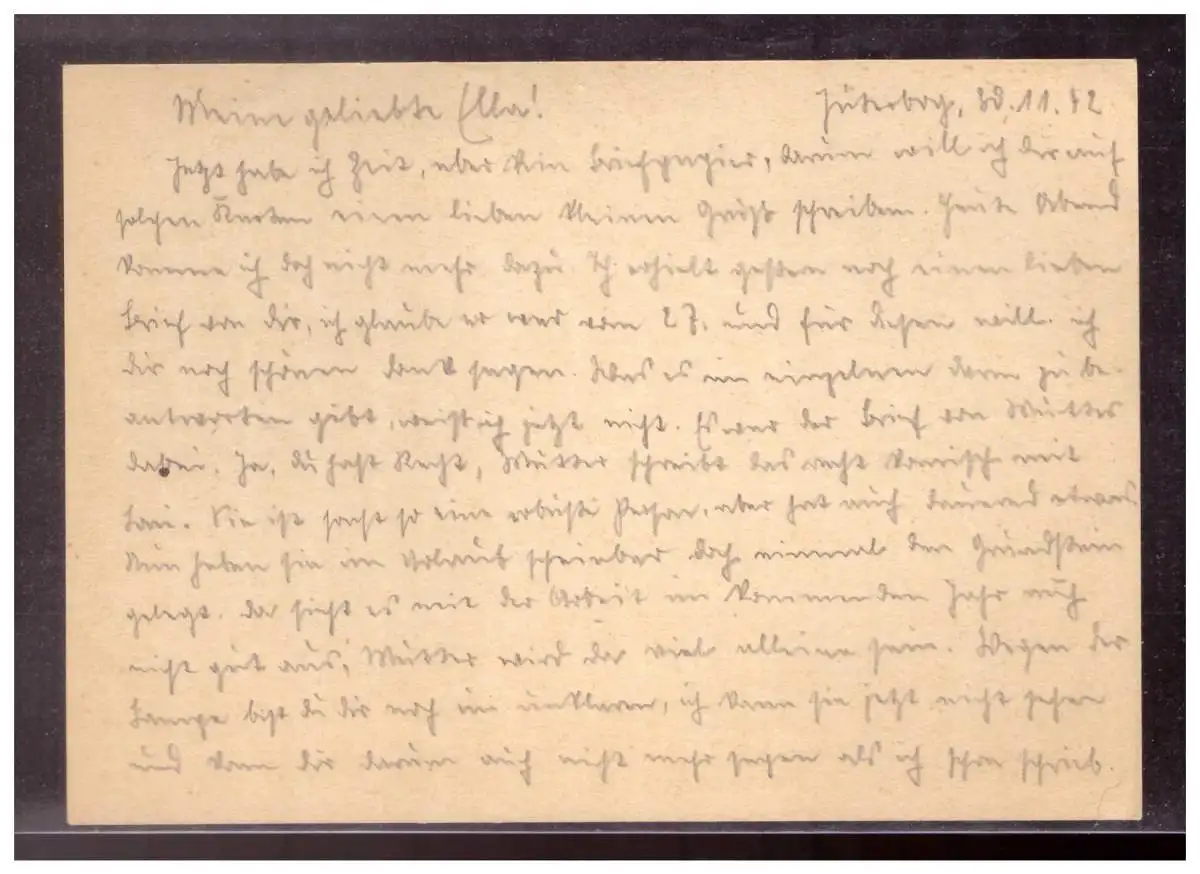 Meine geliebte Ella! Jüterbog, 30.11.42
Jetzt habe ich Zeit, aber kein Briefpapier, darum will ich dir auf
solchen Karten einen lieben kleinen Gruß schreiben. Heute Abend
komme ich doch nicht mehr dazu. Ich erhielt gestern noch einen lieben
Brief von dir, ich glaube er war vom 27. und für diesen will ich
dir noch schönen Dank sagen. Was es im einzelnen darin zu be-
antworten gibt, weiß ich jetzt nicht. Es war der Brief von Mutter
dabei. Ja, du hast Recht, Mutter schreibt das recht komisch mit
Sie ist sonst so eine robuste Person, aber hat auch dauernd etwas.
Nun haben sie im Urlaub scheinbar doch einmal den Grundstein
gelegt. Da sieht es mit der Arbeit im kommenden Jahr auch
nicht gut aus, Mutter wird da viel alleine sein. Wegen der
Lampe bist du dir noch im unklaren, ich kann sie jetzt nicht sehen
und kann dir darum auch nicht mehr sagen als ich schon schrieb.